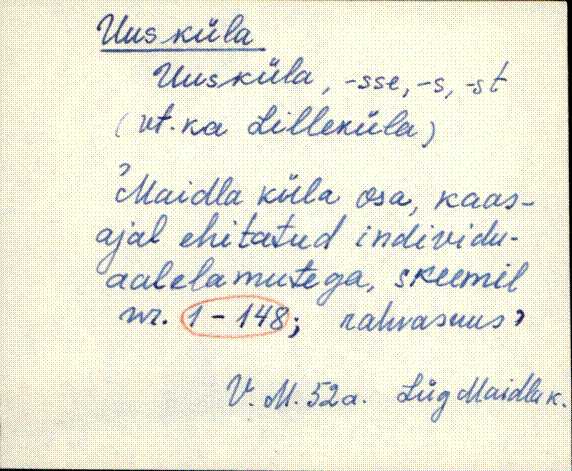 Uusküla
Uusküla, -sse, -s, -st
(vt. ka Lilleküla)
'Maidla küla osa, kaas-
ajal ehitatud individu-
aalelamutega, skeemil
nr. 1-148; rahvasuus'
V. M. 52a. Lüg Maidla k.